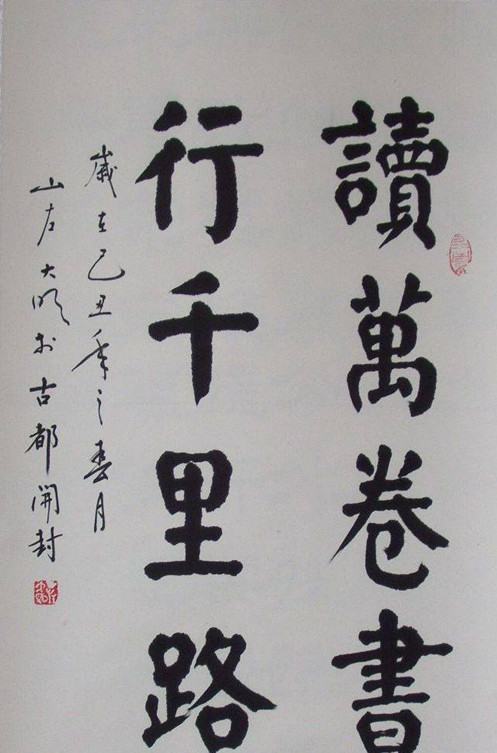 讀萬卷書
行千里路
歲在己丑年之春月
山左大順於古都開封